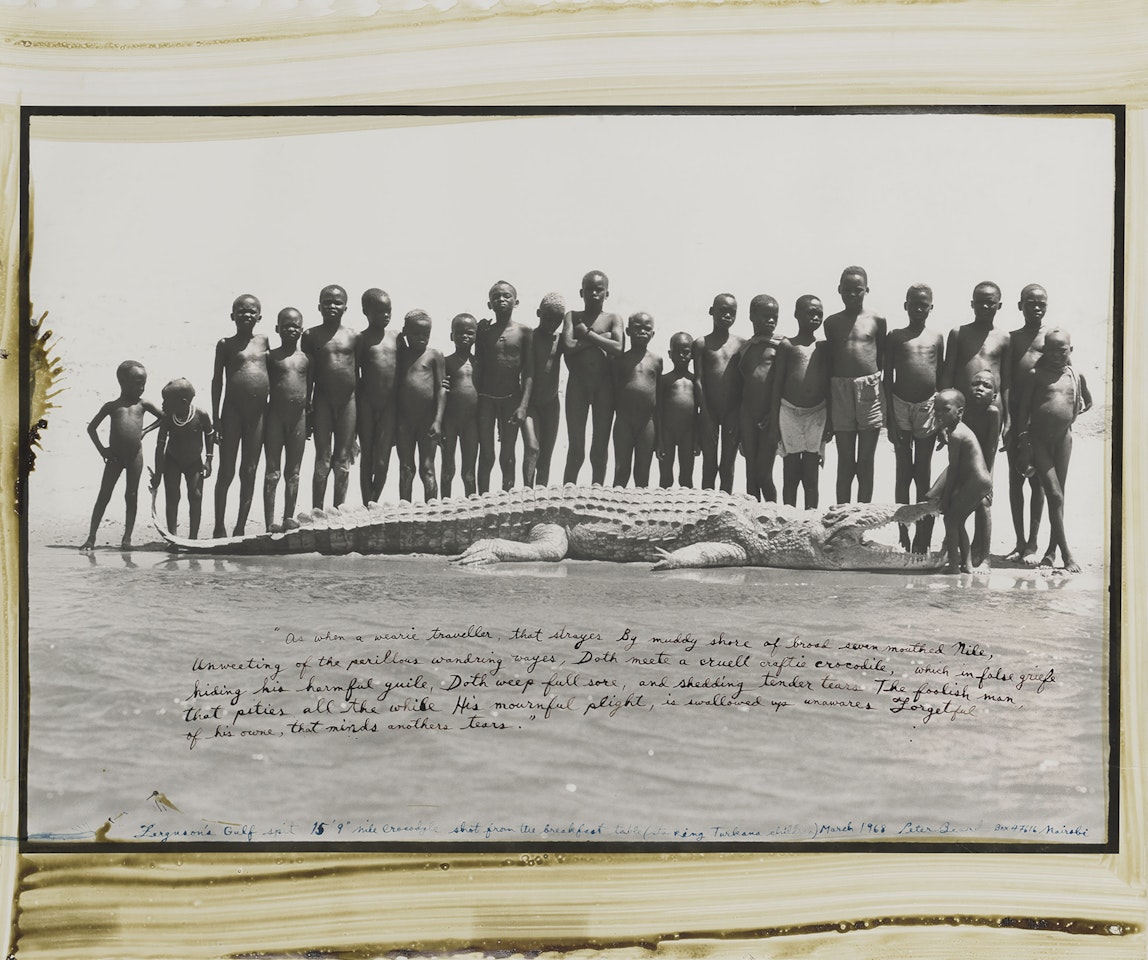 "As when a wearie traveller, that strayes By muddy shore of broad seven mouthed Nile,
Unweeting of the perillous wandring wayes, Doth meete a cruell craftie crocodile, which in false griefe
hiding his harmful guile, Doth weep full sore, and shedding tender tears The foolish man,
that pities all the while His mournful plight, is swallowed up unawares Forgetful
of his owne, that minds anothers tears."
Ferguson's Gulf spit 15'9" nile Crocodile shot from the breakfast table ( Turkana children) March 1968 Peter Beard Box 47616 Nairobi